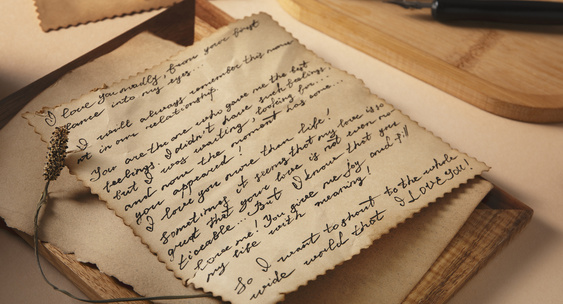 I love you madly, from your first
glance into my eyes...
I will always remember this mome
nt in our relationship
You are the one who gave me the best
feelings, I didn't have such feelings,
but I was waiting, looking for...
and now the moment has come...
you appeared!
I love you more than life!
Sometimes it seems that my love is so
great that your love is not even no
ticeable... But I know that you
love me! You give me joy and fill
my life with meaning!
So I want to shout to the whole
wide world that I LOVE YOU!